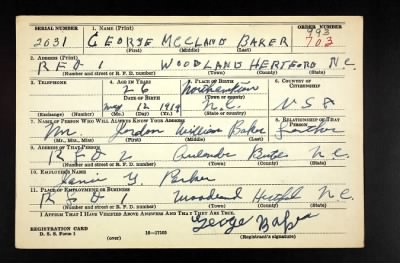 SERIAL NUMBER 1. NAME (Print) ORDER NUMBER
2031 GEORGE MCCLAND BAKER 993
703
(First) (Middle) (Last)
2. ADDRESS (Print)
R F D 1 WOODLAND HERTFORD N C.
(Number and street or R. F. D. number) (Town) (County) (State)
3. TELEPHONE 4. AGE IN YEARS 5. PLACE OF BIRTH 6. COUNTRY OF CITIZENSHIP
26 Northampton
DATE OF BIRTH (Town or county)
May 12 1914 N.C. U S A
(Exchange) (Number) (Mo.) (Day) (Yr.) (State or country)
7. NAME OF PERSON WHO WILL ALWAYS KNOW YOUR ADDRESS 8. RELATIONSHIP OF THAT PERSON
Mr. Jordan William Baker Father
(Mr., Mrs., Miss) (First) (Middle) (Last)
9. ADDRESS OF THAT PERSON
R F D 2 Bertie N C.
(Number and street or R. F. D. number) (Town) (County) (State)
10. EMPLOYER'S NAME
Y Parker
11. PLACE OF EMPLOYMENT OR BUSINESS
R F D 1 Woodland Hertford N C.
(Number and street or R. F. D. number) (Town) (County) (State)
I AFFIRM THAT I HAVE VERIFIED ABOVE ANSWERS AND THAT THEY ARE TRUE.
REGISTRATION CARD George Baker
D. S. S. Form 1 (over) 16—17105 (Registrant's signature)